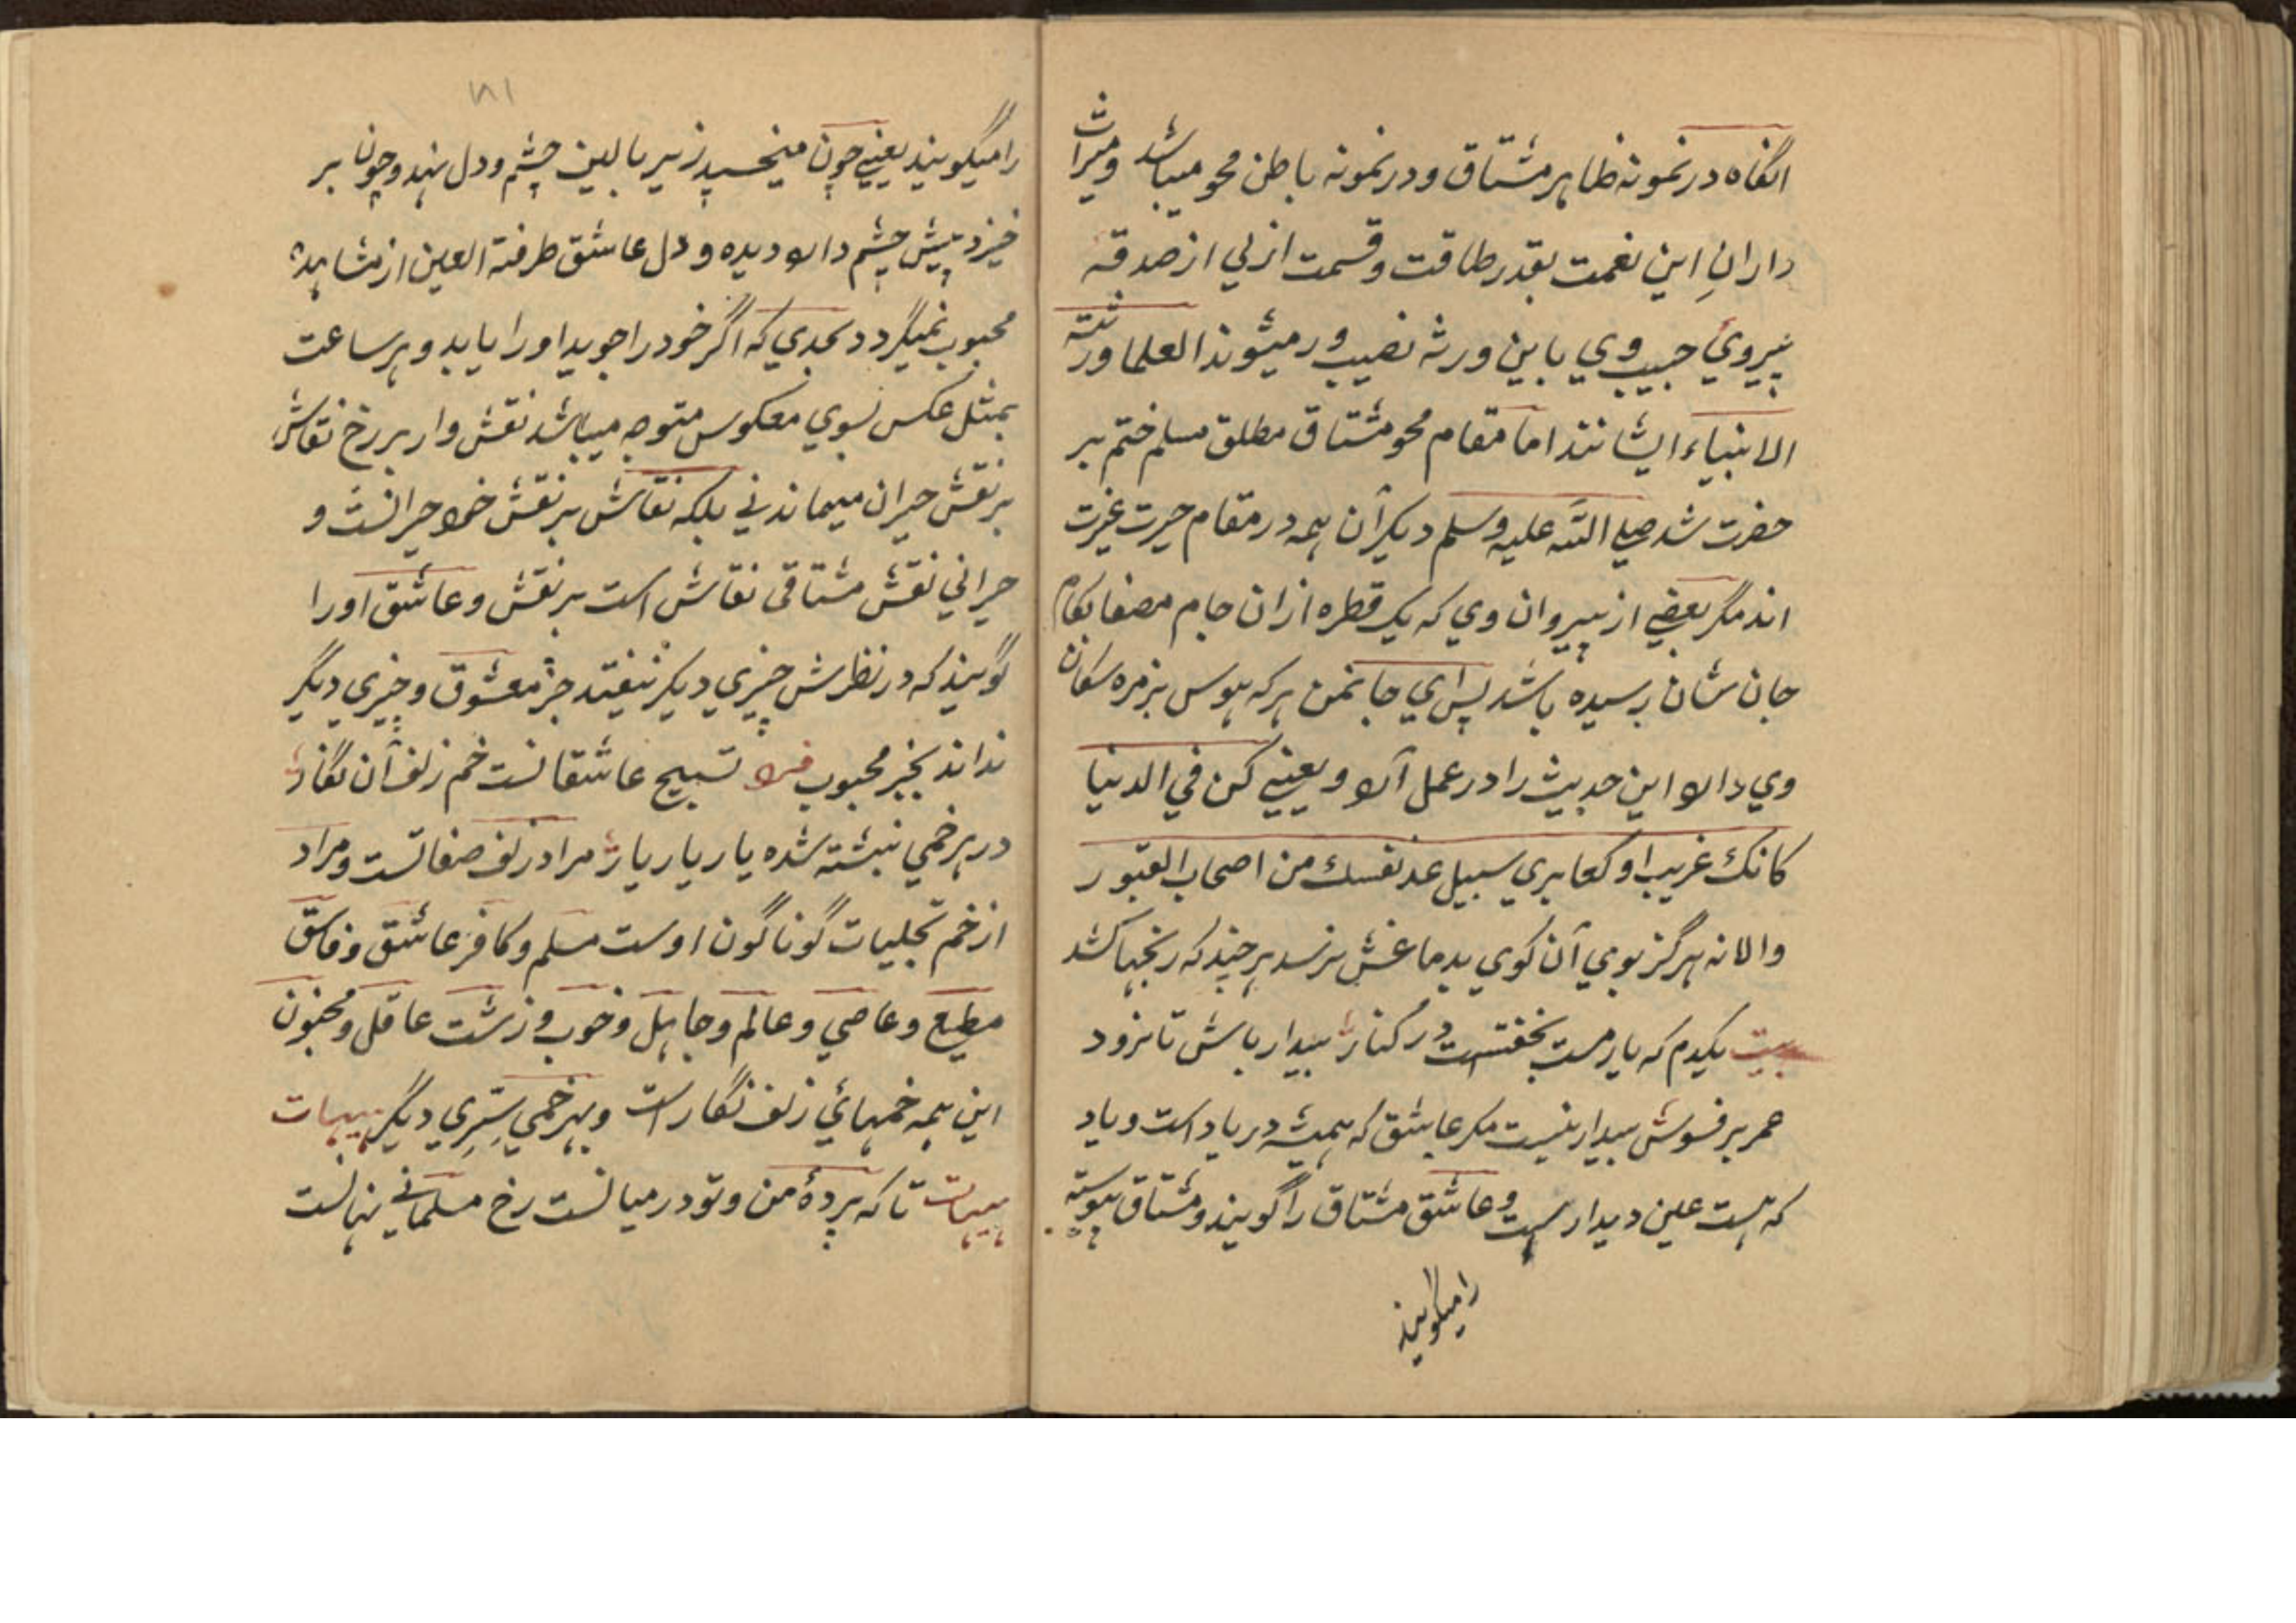 انگاه در نمونه ظاهر مشتاق و در نمونه باطن محو میباشد و میراث
داران این نعمت بقدر طاقت و قسمت ازلي از صدقه
پیروئ حبیب وي باین ورثه نصیب ور میشوند العلما ورثته
الانبیاء ایشانند اما مقام محو مشتاق مطلق مسلم ختم بر
حضرت شد صلي الله علیه وسلم دیگر آن همه در مقام حیرت غیرت
اند مگر بعضي از پیروان وي که یک قطره از ان جام مصفا بکام
جان شان رسیده باشد پس اي جانمن هر که هوس بزمره سکان
وي دارد این حدیث را در عمل آرد و یعني کن في الدنیا
کانك غریب او کعابري سبیل عد نفسك من اصحاب القبور
والانه هرگز بوي آن کوي بدماغش نرسد هر چند که رنجها کشد
بیت یکدم که یار مست بخفتست در کنار بیدار باش تا نرود
عمر بر فسوش بیدار نیست مکر عاشق که همیشه در یاد است و یاد
که هست عین دیدار هست و عاشق مشتاق را گویند و مشتاق پیوسته
را میگویند
۱۸۱
را میگویند یعني چون میخسپد زیر بالین چشم و دل نهد و چون بر
خیزد پیش چشم دارد دیده و دل عاشق طرفته العین از مشاهده
محبوب نمیگردد بحدي که اگر خود را جوید او را یابد و هر ساعت
بمثل عکس بسوي معکوس متوجه میباشد نقش وار بر رخ نقاش
بر نقش حیران میماند ني بلکه نقاش بر نقش خود حیرانست و
حیراني نقش مشتاقی نقاش است بر نقش و عاشق او را
گویند که در نظرش چیزي دیکر نیفتد جز معشوق و چیزي دیگر
نداند بجز محبوب فرد تسبیح عاشقانست خم زلف آن نگار
در هر خمي نبشته شده یار یار یار مراد زلف صفاتست و مراد
از خم تجلیات گوناگون اوست مسلم و کافر عاشق و فاسق
مطیع و عاصي و عالم و جاهل و خوب و زشت عاقل و مجنون
این همه خمهائ زلف نگار است و بهر خمي سِرّي دیگر هیهات
هیهات تا که پردۀ من و تو در میانست رخ مسلماني نهانست